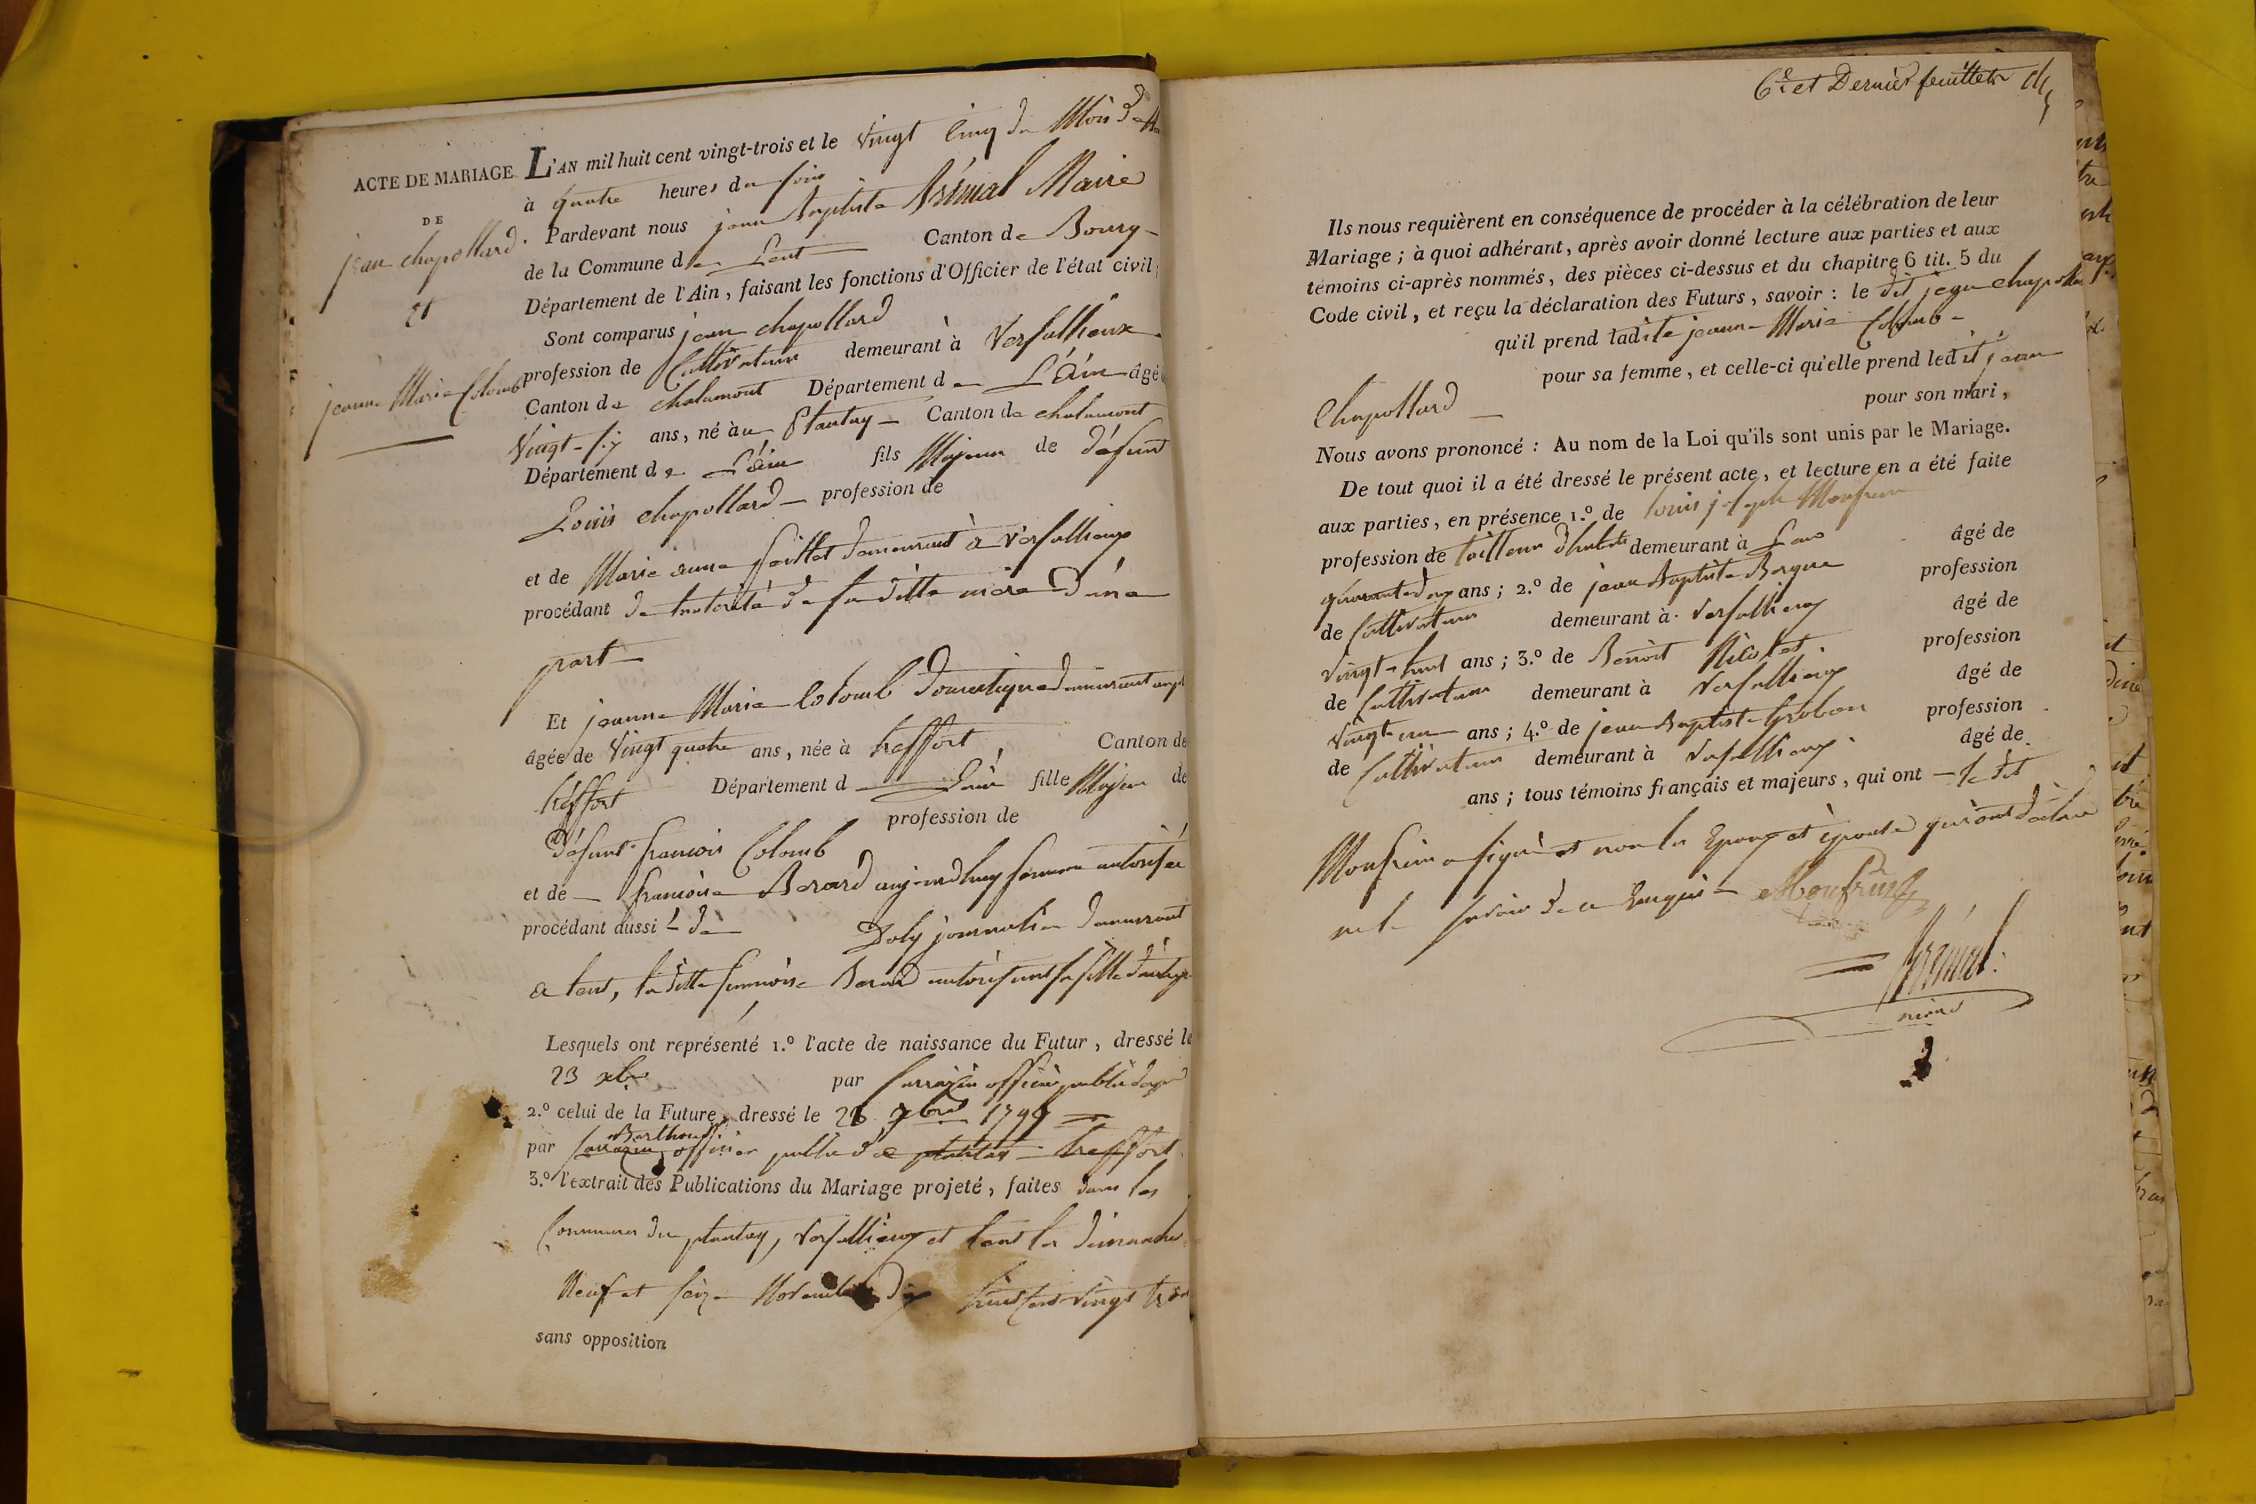 ACTE DE MARIAGE
DE
jean chapollard
et
jeanne Marie Colomb
L'AN mil huit cent vingt-trois et le vingt Cinq du Mois de
à quatre heures du soir
Pardevant nous jean Baptiste Mairie
de la Commune de Lent Canton de Bourg
Département de l'Ain, faisant les fonctions d'Officier de l'état civil;
Sont comparus jean chapollard
profession de Cultivateur demeurant à Versallieux
Canton de chalamont Département de L'Ain âgé
Vingt-six ans, né au Plantay Canton de chalamont
Département de L'ain fils Majeur de défunt
Louis chapollard profession de
et de Marie anne demeurant à Versallieux
procédant de lautorité de sa ditte mère D'une
part
Et jeanne Marie Colomb Domestique demeurant
âgée de Vingt quatre ans, née à treffort Canton de
treffort Département d L'ain fille Majeur de
défunt francois Colomb profession de
et de francoise Berard aujourdhuy femme autorisée
procédant aussi de Doly journalier demeurant
a lent, la ditte francoise Berard autorisant sa fille d'autre
Lesquels ont représenté 1.º l'acte de naissance du Futur, dressé le
23 xbre par Sarrazin officier public
2.º celui de la Future, dressé le 28 7bre 1799
par Sarrazin officier public de plantay treffort
3.º l'extrait des Publications du Mariage projeté, faites dans les
Communes du plantay, versallieux et lent les dimanche
Neuf et seize Novembre dix huit cent vingt trois
sans opposition
6e et Dernier feuillet
Ils nous requièrent en conséquence de procéder à la célébration de leur
Mariage; à quoi adhérant, après avoir donné lecture aux parties et aux
témoins ci-après nommés, des pièces ci-dessus et du chapitre 6 tit. 5 du
Code civil, et reçu la déclaration des Futurs, savoir: le dit jean chapollard
qu'il prend ladite jeanne Marie Colomb
pour sa femme, et celle-ci qu'elle prend ledit jean
Chapollard pour son mari,
Nous avons prononcé: Au nom de la Loi qu'ils sont unis par le Mariage.
De tout quoi il a été dressé le présent acte, et lecture en a été faite
aux parties, en présence 1.º de louis joseph Monfrein
profession de tailleur d'habits demeurant à Lent âgé de
quarante deux ans; 2.º de jean Baptiste profession
de Cultivateur demeurant à Versallieux âgé de
vingt-huit ans; 3.º de Benoit Nicolet profession
de Cultivateur demeurant à Versallieux âgé de
vingt-un ans; 4.º de jean Baptiste Grobon profession
de Cultivateur demeurant à Versallieux âgé de
ans; tous témoins français et majeurs, qui ont le dit
Monfrein a signé et non les Epoux et épouse qui ont déclaré
ne le savoir de ce Enquis Monfrein
maire